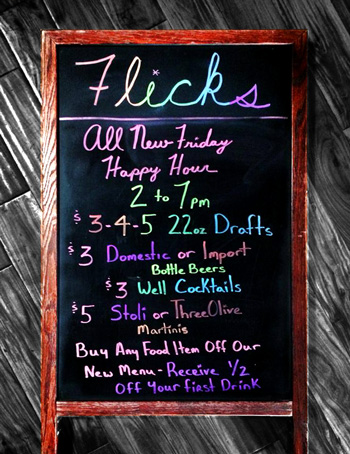 Flicks
All New Friday
Happy Hour
2 to 7pm
$3-4-5 22oz Drafts
$3 Domestic or Import
Bottle Beers
$3 Well Cocktails
$5 Stoli or Three Olive
Martinis
Buy Any Food Item Off Our
New Menu - Receive 1/2
Off Your First Drink